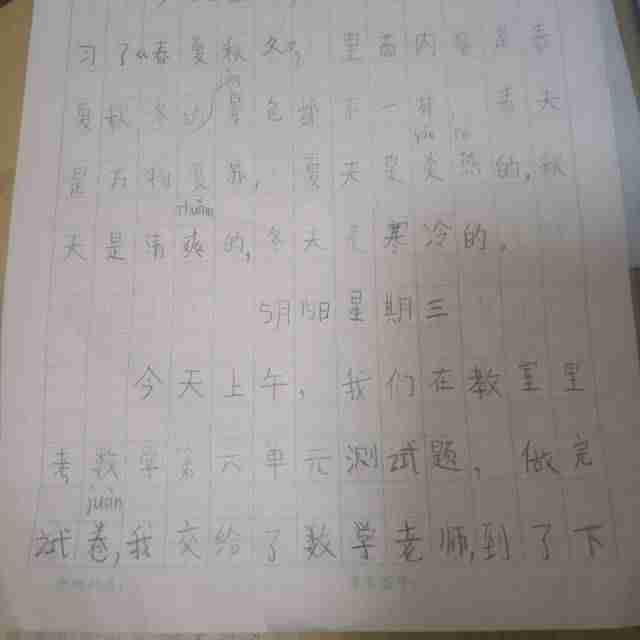 习了《春夏秋冬》,里面内容是春
夏秋冬的景色都不一样,春天
yán rè
是万物复苏,夏天是炎热的,秋
shuǎng
天是清爽的,冬天是寒冷的。
5月19日星期三
今天上午,我们在教室里
考数学第六单元测试题,做完
juàn
试卷,我交给了数学老师,到了下